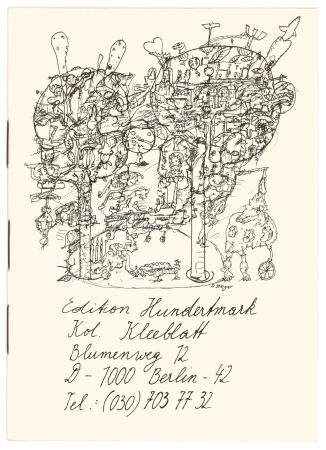 D. Steiger
Edition Hundertmark
Kol. Kleeblatt
Blumenweg 12
D - 1000 Berlin - 42
Tel.: (030) 703 77 32